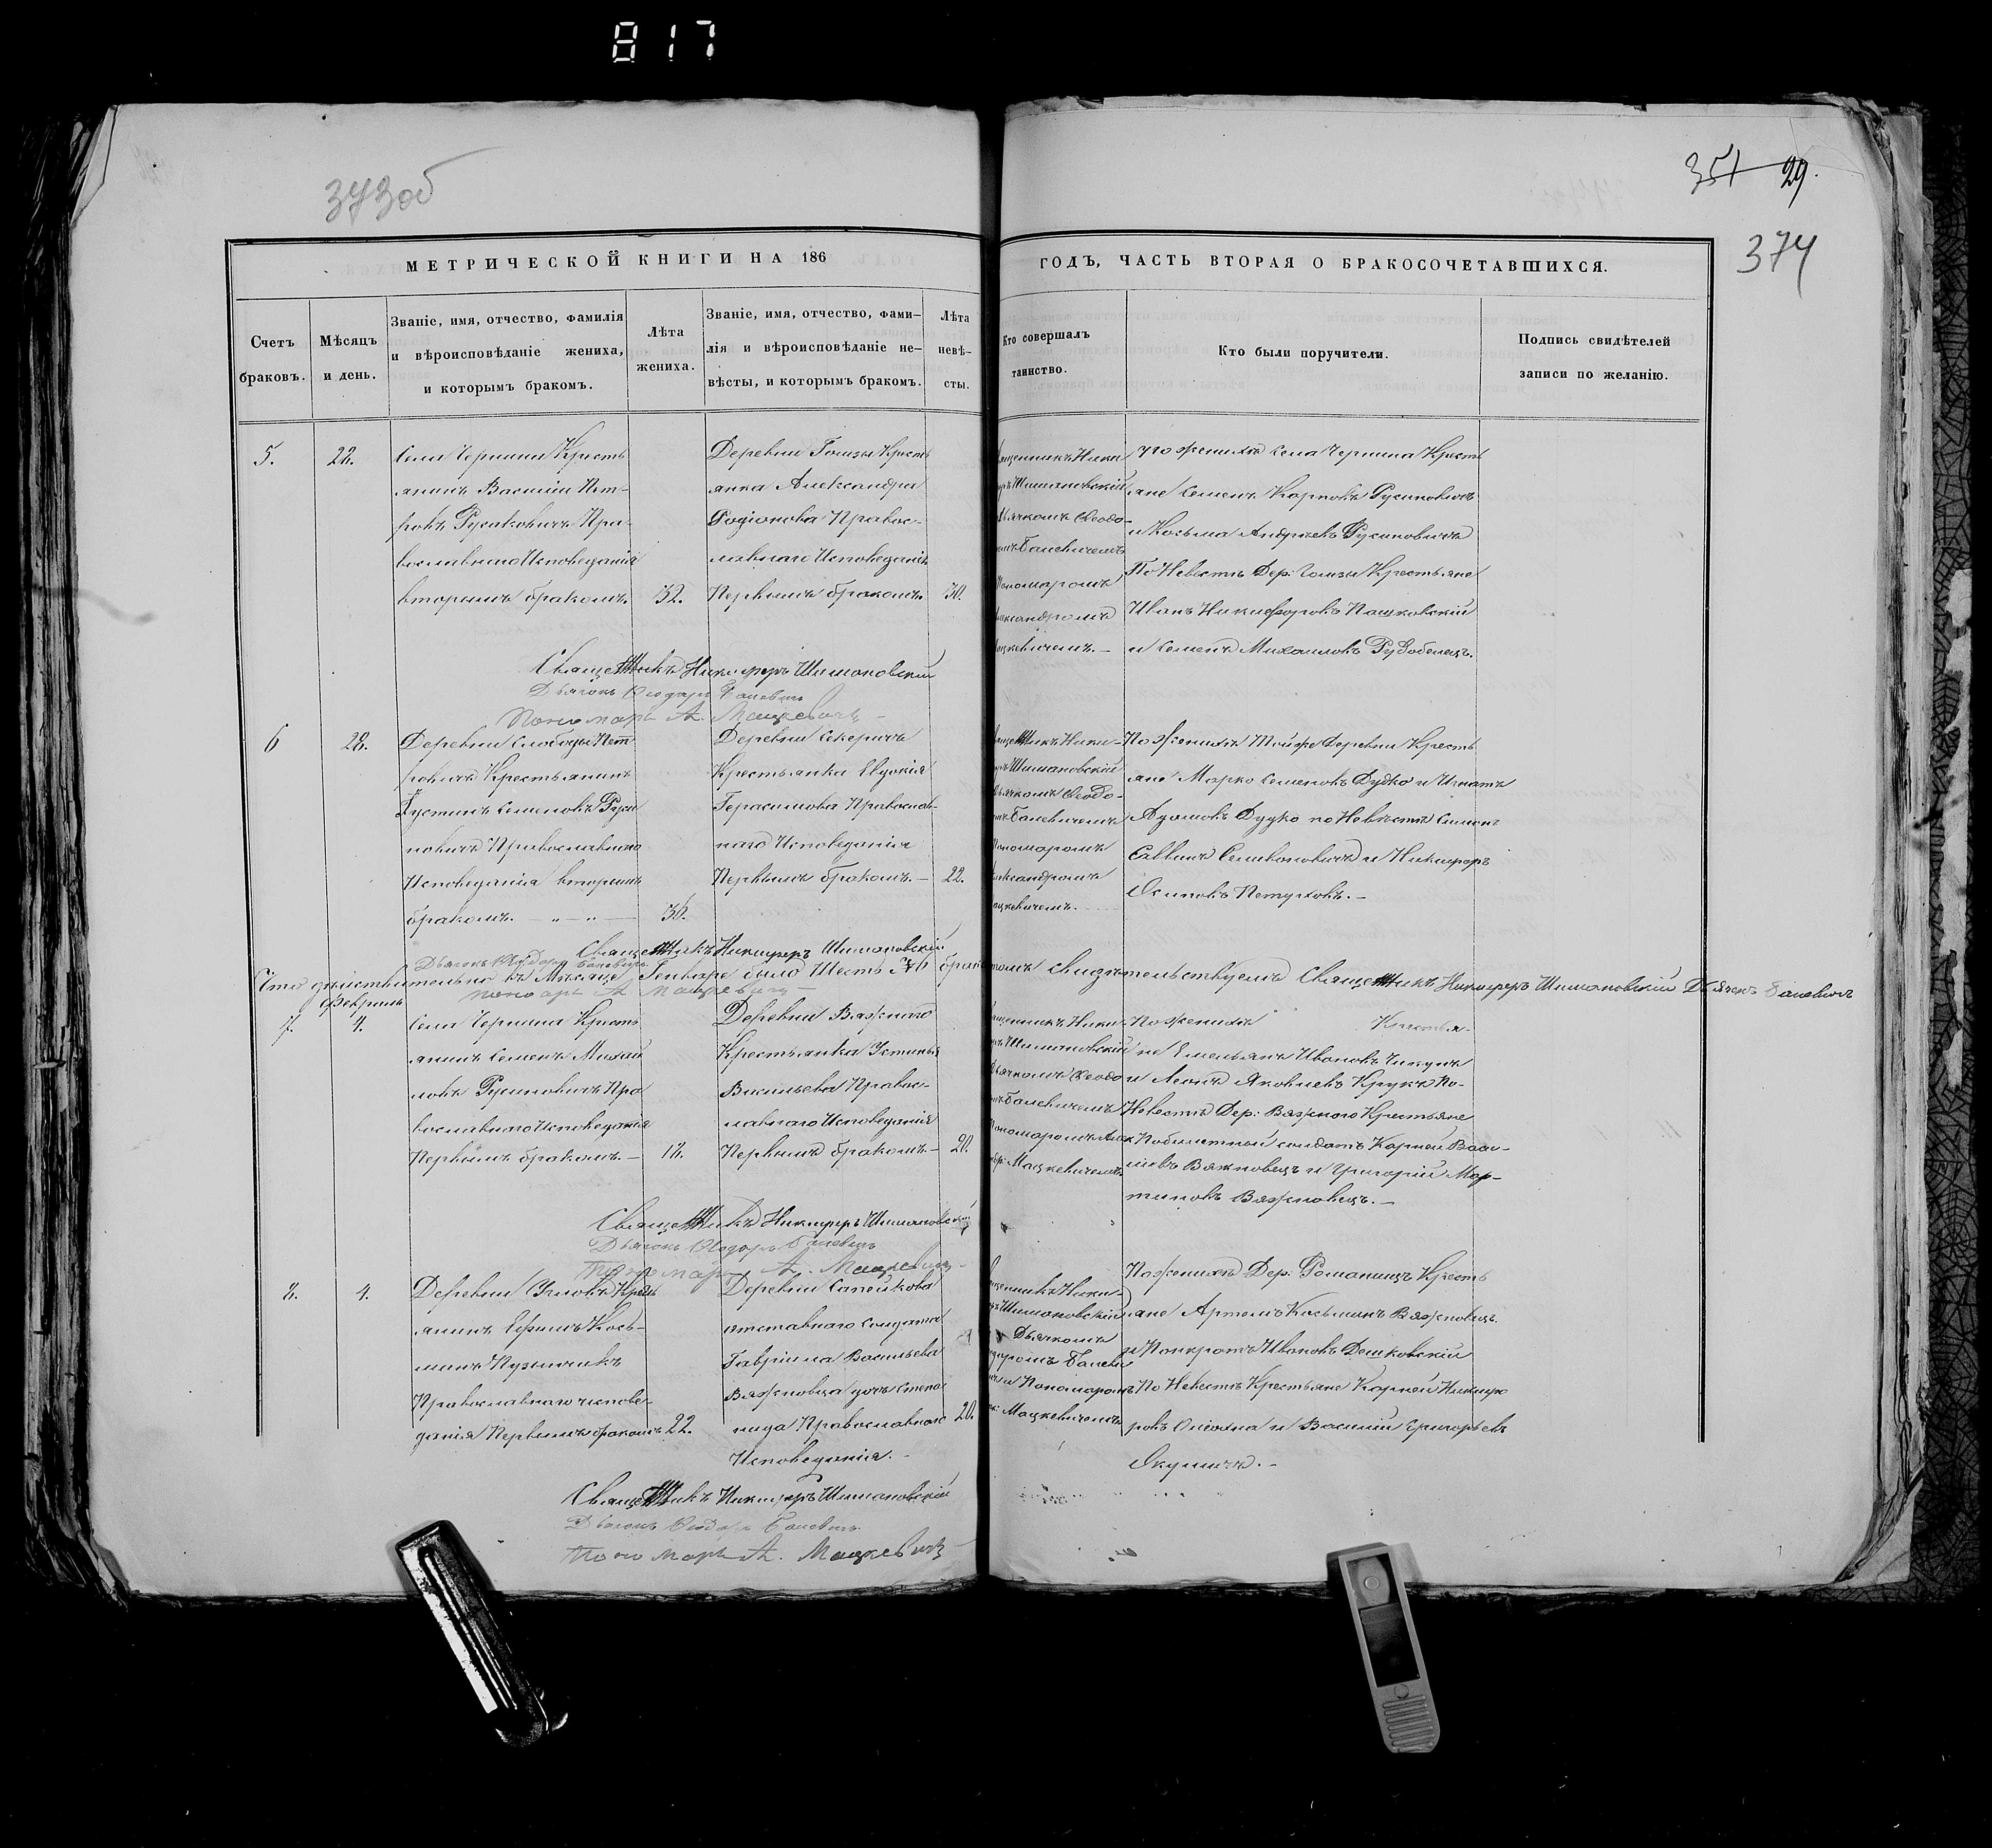 817
373об
351 29.
374
МЕТРИЧЕСКОЙ КНИГИ НА 186
ГОДЪ, ЧАСТЬ ВТОРАЯ О БРАКОСОЧЕТАВШИХСЯ.
Счетъ браковъ.
Мѣсяцъ и день.
Званіе, имя, отчество, фамилія
и вѣроисповѣданіе жениха,
и которымъ бракомъ.
Лѣта
жениха.
Званіе, имя, отчество, фами-
лія и вѣроисповѣданіе не-
вѣсты, и которымъ бракомъ.
Лѣта
невѣ-
сты.
Кто совершалъ
таинство.
Кто были поручители.
Подпись свидѣтелей
записи по желанію.
5.
22.
Села Чернина Кресть
янинъ Василій Пет-
ровъ Русакович Пра-
вославнаго Исповеданія
вторымъ бракомъ.
32.
Деревни Гомзы Кресть
янка Александра
Родіонова Правос-
лавнаго Исповеданія
Первымъ бракомъ.
30.
Ники
Шимановскій
Дьячкомъ Феодо-
Баневичемъ
Пономаромъ
Александромъ
Мацкевичемъ. –
По женихѣ Села Чернина Кресть
яне Семенъ Карповъ Русиновичъ
и Косьма Андреевъ Русиновичъ
По Невестѣ Дер: Гомзы Крестьяне
Иванъ Никифоровъ Пашковскій
и Семенъ Михайловъ Рудобелецъ.
Священникъ Никифоръ Шимановскій
Дьячокъ Феодоръ Баневичъ
Пономарь А. Мацкевичъ
6
28.
Деревни Слободы Пет
ровичъ Крестьянинъ
Іустинъ Семеновъ Руси
новичъ Православнаго
Исповеданія вторымъ
бракомъ. – „ – „ –
36.
Деревни Секеричъ
Крестьянка Евдокія
Герасимова Православ-
наго Исповеданія
Первымъ бракомъ. –
22.
Ники-
Шимановскій
Дьячкомъ Феодо-
Баневичемъ
Пономаромъ
Александромъ
Мацкевичемъ.
По Женихѣ Тойже Деревни Кресть
яне Марко Семеновъ Дудко и Игнатъ
Адамовъ Дудко по Невѣстѣ Симонъ
Саввинъ Селивоновичъ и Никифоръ
Осиповъ Петуховъ. –
Священникъ Никифоръ Шимановскій
Дьячокъ Феодоръ Баневичъ
Что дѣйствительно въ Мѣсяце Генваре было Шесть № 6 браковъ томъ свидѣтельствуемъ Священникъ Никифоръ Шимановскій Дьячекъ Баневичъ
Пономарь А Мацкевичъ –
Февраль
7.
4.
Села Чернина Кресть
янинъ Семенъ Михай
ловъ Русиновичъ Пра
вославнаго Исповеданія
Первымъ бракомъ. –
18.
Деревни Вяжнаго
Крестьянка Устинья
Васильева Правос-
лавнаго Исповеданія
Первымъ бракомъ. –
20.
Ники
Шимановскій
Дьячкомъ Феодо
Баневичемъ
Пономаромъ Алек
Мацкевичемъ
По женихѣ Крестья-
не Емельянъ Ивановъ Чикунъ
и Леонъ Яковлевъ Крукъ По-
Невестѣ Дер: Вяжного Крестьяне
и Побилетный солдатъ Карней Васи-
ліевъ Вяжновецъ и Григорій Мар-
тиновъ Вяжновецъ. –
Священникъ Никифоръ Шимановскій
Дьячокъ Феодоръ Баневичъ
Пономарь А. Мацкевичъ
8.
4.
Деревни Угловъ Кресть
янинъ Ефимъ Кось-
минъ Пузычикъ
Православнаго исповѣ-
данія Первымъ бракомъ
22.
Деревни Сапейкова
отставнаго Солдата
Гавріила Васильева
Вяжновца дочь Степа
нида Православнаго
Исповеданія. –
20.
Ники-
Шимановскій
Дьячкомъ
Баневи
и Пономаромъ
Мацкевичемъ
По женихѣ Дер: Романищъ Кресть
яне Артемъ Косьминъ Вяжновецъ.
и Панкратъ Ивановъ Дешковскій
По Невестѣ Крестьяне Карней Никифо
ровъ и Василій Григорьевъ
Якушикъ. –
Священникъ Никифоръ Шимановскій
Дьячокъ Феодоръ Баневичъ
Пономарь А. Мацкевичъ